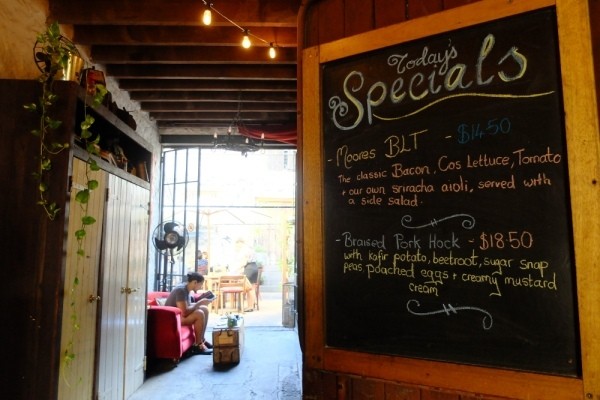 Today's
Specials
- Moores BLT - $14.50
The classic Bacon, Cos Lettuce, Tomato
+ our own sriracha aioli, served with
a side salad.
- Braised Pork Hock - $18.50
with Kafir potato, beetroot, sugar snap
peas, poached eggs + creamy mustard
cream